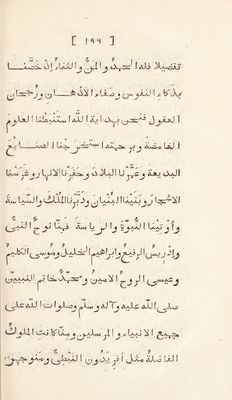 [ ١٩٦ ]
تفضيلا فله الحمد والمن والثناء اذ خصنا
بذكاء النفوس وصفاء الاذهان ورجحان
العقول فنحن بهداية الله استنبطنا العلوم
الغامضة وبرحمته استخرجنا الصنايع
البديعة وعمرنا البلاد وحفرنا الانهار وغرسنا
الاشجار وبنينا البنيان ودبرنا الملك والسياسة
واوتينا النبوة والرياسة فمنا نوح النبى
وادريس الرفيع وابراهيم الخليل وموسى الكليم
وعيسى الروح الامين ومحمد خاتم النبيين
صلى الله عليه وآله وسلم وصلوات الله على
جميع الانبياء والمرسلين ومنا كانت الملوك
الفاضلة مثل افريدون القبطى ومنوجهر